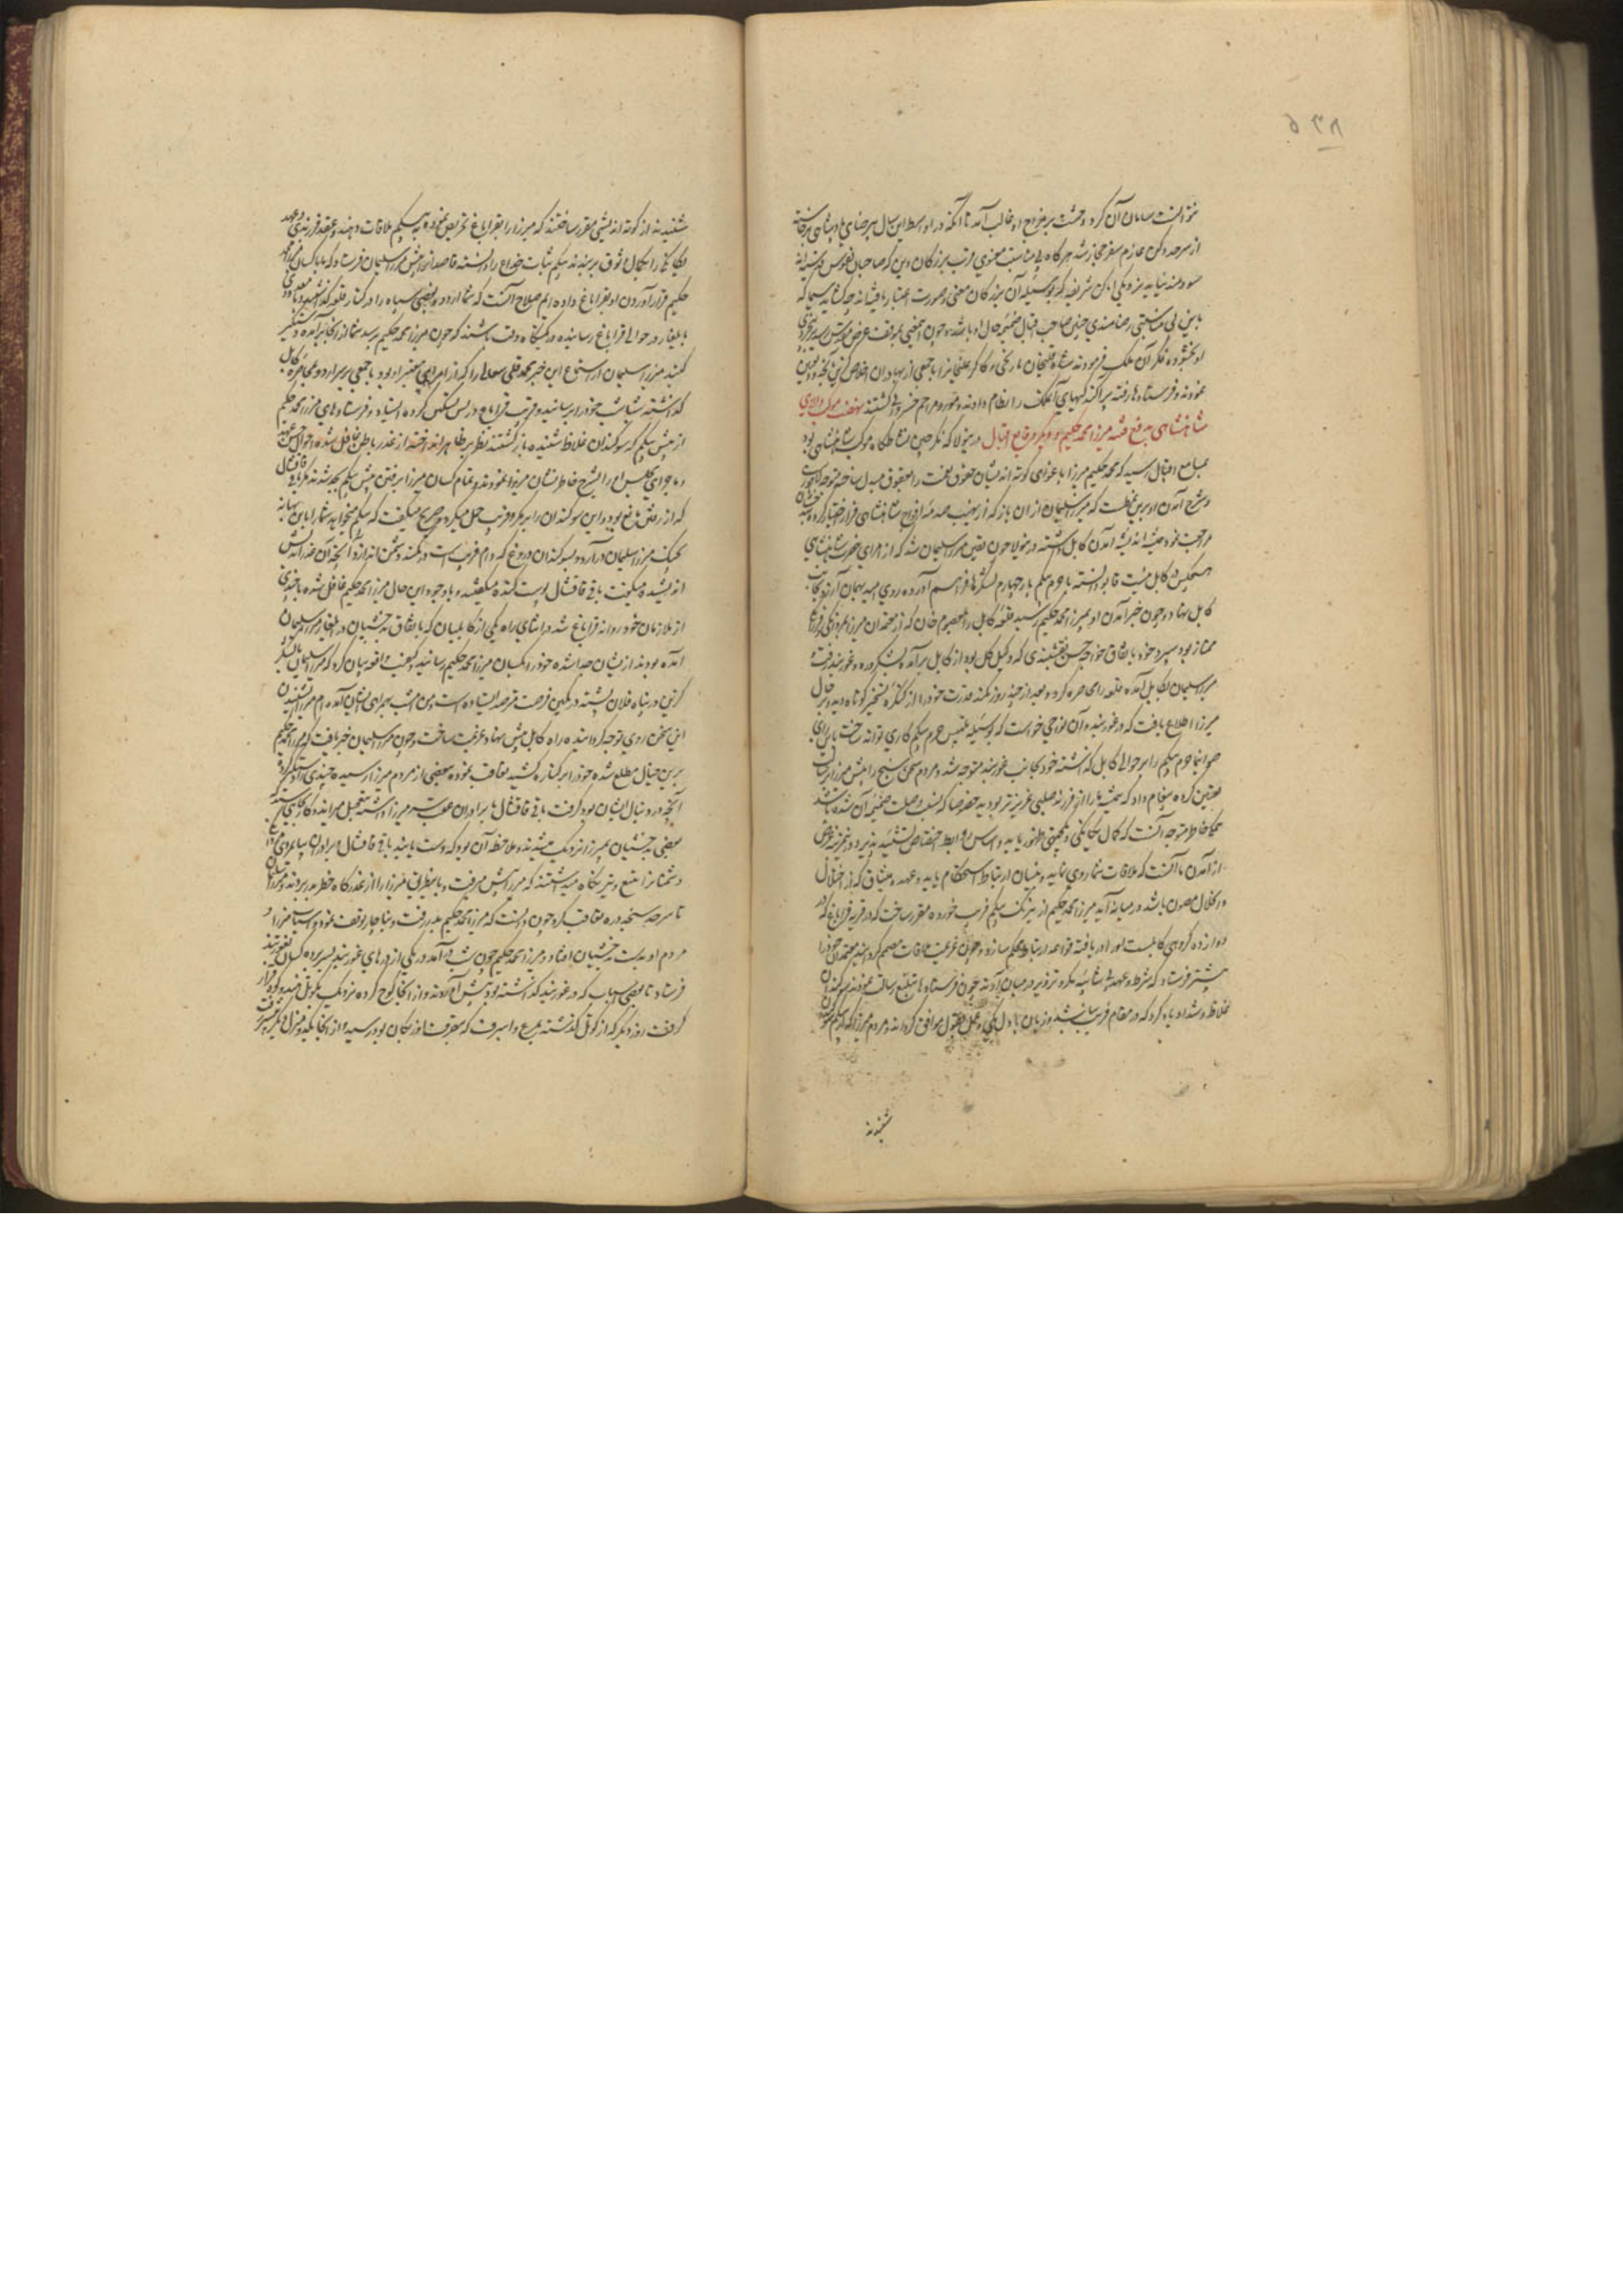 ۵۳۸
نتوانست سامان آن کرد و وحشت بر مزاج او غالب آمد تا آنکه در اواسط این سال بی رضای پادشاهی برخاسته
از سرحد دکن عازم سفر حجاز شد هرگاه بی مناسبت معنوی قرب بزرگان دین که صاحبان نفوس قدسیه اند
سودمند نیاید نزدیکی اماکن شریفه که بوسیله آن بزرگان معنی و صورت اعتبار یافته اند چه گشاید سیما که
باین بی مناسبتی رضامندی چنین صاحب اقبال ضمیمه حال او باشد و چون این معنی بموقف عرض مقدس رسید
او بخشوده فکر آن ملک فرمودند شاه قلیخان نارنجی و کاکر علیخان را با جمعی از بهادران اخلاص گزین
نموده فرستادند رفته پراکندگیهای آن ملک را انتظام دادند و مورد مراحم خسروانی گشتند نهضت موکب والای
شاهنشاهی بدفع فتنه میرزا محمد حکیم و دیگر وقایع اقبال درینولا که نگرچین نشاط گاه موکب شاهنشاهی بود
بمسامع اقبال رسید که محمد حکیم میرزا باغوای کوته اندیشان حقوق نعمت را بعقوق مبدل ساخته متوجه لاهور است
و شرح آمدن او برین نمط است که میرزا سلیمان از ان باز که از نهیب صدمه افواج شاهنشاهی فرار اختیار کرده به بدخشان
مراجعت نمود همیشه اندیشه آمدن کابل داشت درینولا چون یقین میرزا سلیمان شد که از امرای حضرت شاهنشاهی
هیچکس در کابل نیست قابو دانسته با حرم بیکم بار چهارم لشکرها فراهم آورده روی امید بهمان آرزو بجانب
کابل نهاد و چون خبر آمدن او بمیرزا محمد حکیم رسید قلعه کابل را بمعصوم خان که از معتمدان میرزا بمردانگی و فرزانگی
ممتاز بود سپرد و خود باتفاق خواجه حسن نقشبندی که وکیل کل بود از کابل برآمده بشکردره و غوربند رفت
میرزا سلیمان بکابل آمده قلعه را محاصره کرد و بعد از چند روز کمند قدرت خود را از کنگره تسخیر کوتاه دید و بر حال
میرزا اطلاع یافت که در غوربند و آن نواحی است خواست که بوسیله تلبیس حرم بیکم کاری تواند ساخت باین رای
صوابنما حرم بیکم را بر حوالی کابل گذاشته خود بجانب غوربند متوجه شد و مردم سخن سنج را پیش میرزا فرستاد
تعین کرده پیغام داد که همیشه شما را از فرزند صلبی عزیزتر بود به خصوصا که نسبت وصلت ضمیمه آن شده باشد
همگی خاطر متوجه آنست که کمال یگانگی و یکجهتی بظهور یابد و اساس روابط اختصاص تشیید پذیرد و غرض
از آمدن ما آنست که ملاقات شما روی نماید و بنیان ارتباط استحکام یابد و عهد و میثاق که از اختلال
و انحلال مصون باشد در میان آید میرزا محمد حکیم از نیرنگ بیکم فریب خورده مقرر ساخت که در قریه قراباغ که در
دوازده کروهی کابلست او را دریافته قواعد ارتباط محکم سازد و چون عزیمت ملاقات مصمم کرد چند معتمدان خود را
پیشتر فرستاد که شرط و عهد بی شائبه مکر و تزویر در میان آورند چون فرستادها تبلیغ رسالت نمودند سوگندان
غلاظ و شداد یاد کرد که در مقام فریب نباشد و زبان با دل یکی و عمل با قول موافق گرداند و مردم میرزا
شنیدند
شنیدند از کوته اندیشی مقرر ساختند که میرزا را بقراباغ تحریص نموده به بیکم ملاقات دهند و عقد فرزندی و عهد
یگانگی را بکمال وثوق برسانند بیکم ثبات خداع را دانسته قاصد از پیش میرزا سلیمان فرستاد که ما با کسان میرزا محمد
حکیم قرار آوردن او بقراباغ داده ایم صلاح آنست که شما اردو و بعضی سپاه را در کنار قلعه گذاشته و با معدودی
بایلغار در حوالی قراباغ رسانیده در کمینگاه وقت باشند که چون میرزا محمد حکیم رسد شما از آنجا برآمده دستگیر
کنید میرزا سلیمان از استماع این خبر محمد قلی شغالی را که از امرای معتبر او بود با جمعی بر سر اردو و محاصره کابل
گذاشته شباشب خود را رسانید و قرب قراباغ در پس پشته کرده ایستاد و فرستادهای میرزا محمد حکیم
از پیش بیکم که سوگندان غلاظ شنیده بازگشتند نظر بر ظاهر انداخته از غدر باطن غافل شده احوال حسن عهد
و ماجرای مجلس را بشرح خاطرنشان میرزا نمودند و تمام کسان میرزا برفتن پیش بیکم بجد شدند مگر باقی قاقشال
که از رفتن مانع بود و این سوگندان را بر مکر و فریب حمل میکرد و صریح میگفت که بیکم میخواهد شما را باین بهانه
بچنگ میرزا سلیمان درآرد و سوگندان دروغ که دام فریب است
اندیشیده میگفت باقی قاقشال پوست کنده میگفتند و باوجود این حال میرزا محمد حکیم غافل شده با چندی
از ملازمان خود روانه قراباغ شد در اثنای راه یکی از کابلیان که باتفاق بدخشیان در ایلغار میرزا سلیمان
آمده بودند ازیشان جدا شده خود را بکسان میرزا محمد حکیم رسانید و کیفیت واقعه بیان کرد که میرزا سلیمان با لشکر
گزین در پناه فلان پشته در کمین فرصت مترصد ایستاده است و من امشب بهمراهی ایشان آمده ام میرزا بشنیدن
این سخن روی توجه گردانیده راه کابل پیش نهاد عزیمت ساخت و چون میرزا سلیمان خبر یافت که میرزا محمد حکیم
برین خیال مطلع شده خود را بر کناره کشید تعاقب نموده ببعضی از مردم میرزا رسیده چندی را دستگیر کرد
آنچه در دنبال ایشان بود گرفت باقی قاقشال با برادران عقب میرزا داشته بتعجیل میراند و گاهی که
بعضی بدخشیان بمیرزا نزدیک میشدند و ملاحظه آن بود که دست یابند باقی قاقشال و برادران بپای مردی
دشمنان را بتیغ و تیر نگاه میداشتند که میرزا پیش میرفت و باین طریق میرزا را از غدرگاه خطر بدر بردند و میرزا سلیمان
تا سرحد سنجد دره تعاقب کرد چون دانست که میرزا محمد حکیم بدر رفت و بناچار توقف نمود و اسباب میرزا و
مردم او بدست بدخشیان افتاد و میرزا محمد حکیم چون شب درآمد در یکی از درهای غوربند بسر برده کسان بغوربند
فرستاد تا بعضی اسباب که در غوربند گذاشته بود پیش آوردند و از آنجا کوچ کرده نزدیک بکوتل هندوکوه قرار
گرفت روز دیگر که از کوتل گذشته